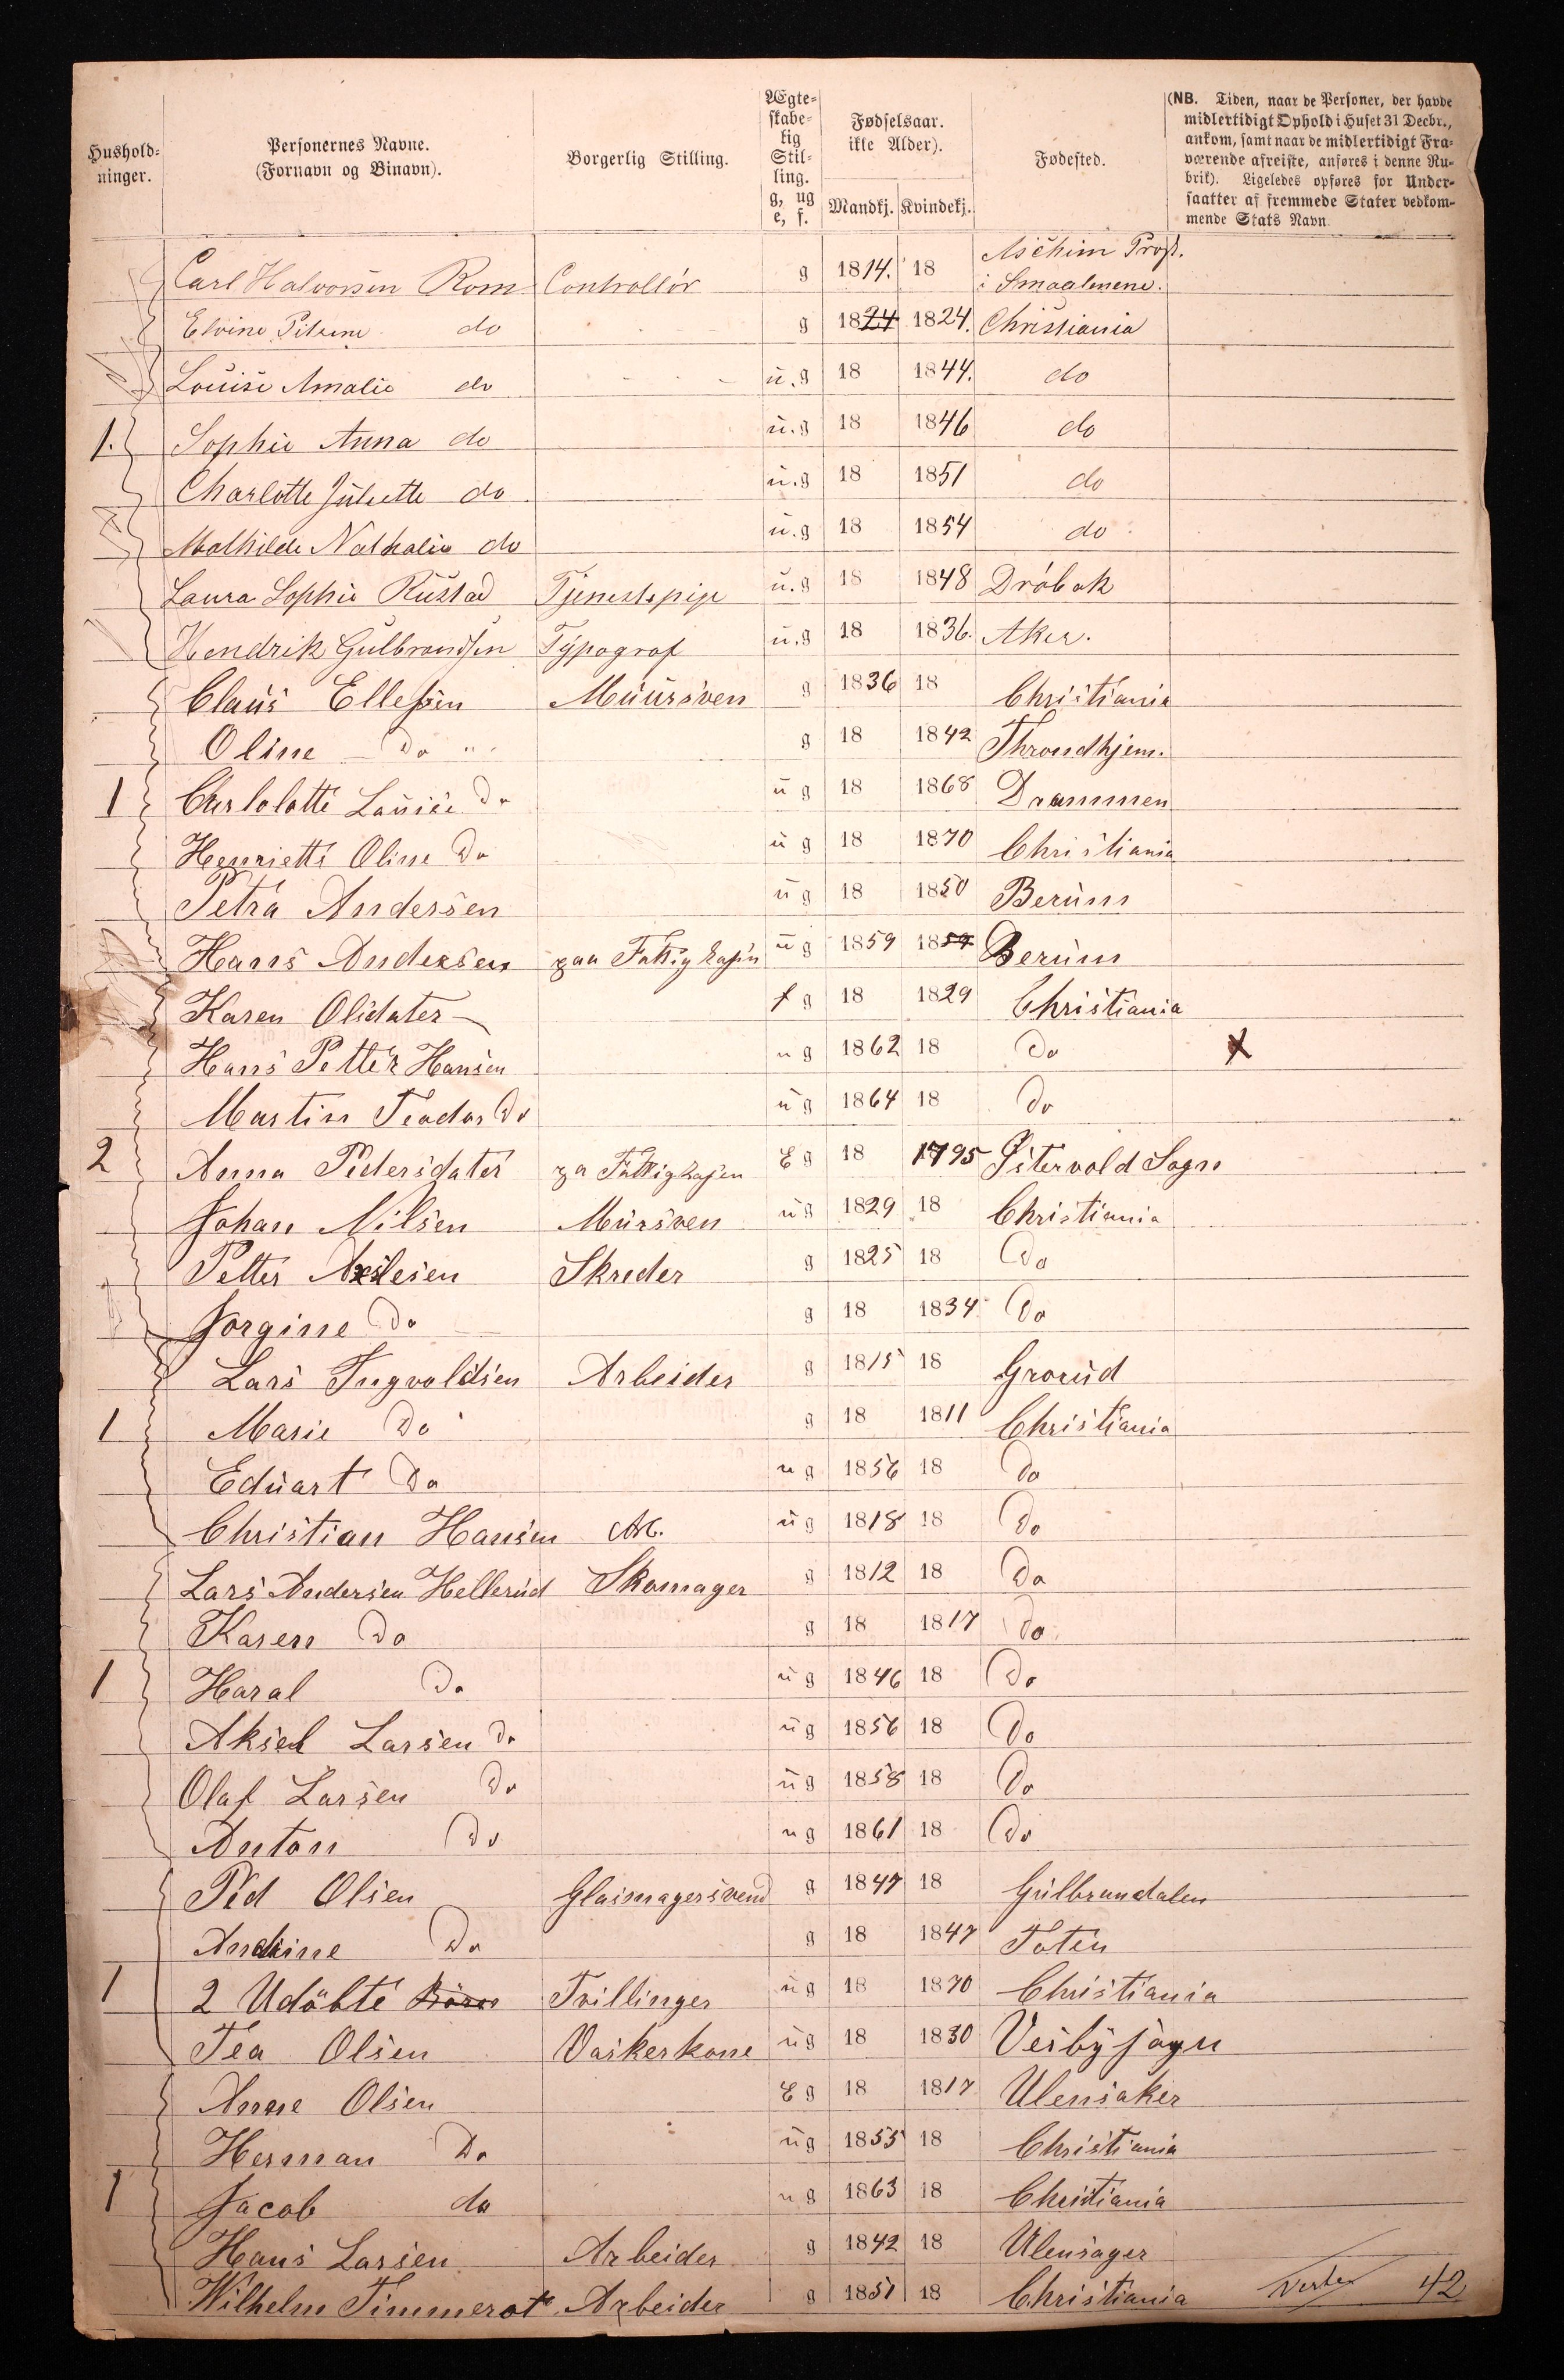 Hushold-
ninger.
Personernes Navne.
(Fornavn og Binavn).
Borgerlig Stilling.
Ægte-
skabe-
lig
Stil-
ling.
g, ug
e, f.
Fødselsaar.
ikke Alder).
Mandkj. Kvindekj.
Fødested.
(NB. Tiden, naar de Personer, der havde
midlertidigt Ophold i Huset 31 Decbr.,
ankom, samt naar de midlertidigt Fra-
værende afreiste, anføres i denne Ru-
brik). Ligeledes opføres for Under-
saatter af fremmede Stater vedkom-
mende Stats Navn.
Carl Halvorsen Rom Controllør g 1814. 18 Aschim Præst. i Smaalenene.
Elvine do g 1824 1824. Christiania
Louise Amalie do u.g 18 1844. do
1. Sophie Anna do u.g 18 1846 do
Charlotte Juliette do u.g 18 1851 do
Mathilde Nathalie do u.g 18 1854 do
Laura Sophie Rustad Tjenestepige u.g 18 1848 Dröbak
Hendrik Gulbrandsen Typograf u.g 18 1836. Aker.
Claus Ellefsen Muursven g 1836 18 Christiania
Oline Do g 18 1842 Throndhjem.
1 Charlolotte Lauise Do u g 18 1868 Drammen
Henriette Oline Do u g 18 1870 Christiania
Petra Andersen u g 18 1850 Berum
Hans Andersen paa Fattigkassen u g 1859 1859 Berum
Karen Olsdater f g 18 1829 Christiania
Hans Petter Hansen u g 1862 18 Do X
Martin Teodor Do u g 1864 18 Do
2 Anna Pedersdater pa Fattigkasen E g 18 1795 Sogn
Johan Nilsen Mursven u g 1829 18 Christiania
Petter Axelesen Skreder g 1825 18 Do
Jorgine Do g 18 1834 Do
Lars Ingvoldsen Arbeider g 1815 18 Grorud
1 Marie Do g 18 1811 Christiania
Eduart Do u g 1856 18 Do
Christian Hansen Ar. u g 1818 18 Do
Lars Andersen Hellerud Skomager g 1812 18 Do
Karen Do g 18 1817 Do
1 Haral Do u g 1846 18 Do
Aksel Larsen Do u g 1856 18 Do
Olaf Larsen Do u g 1858 18 Do
Anton Do u g 1861 18 Do
Ped Olsen Glasmagersvend g 1847 18 Gulbrandalen
Andrine Do g 18 1847 Toten
1 2 Udöbte Börn Tvillinger u g 18 1870 Christiania
Tea Olsen Vaskerkone u g 18 1830 Vesby sogn
Anne Olsen E g 18 1817 Ulensaker
Herman Do u g 1855 18 Christiania
1 Jacob do u g 1863 18 Christiania
Hans Larsen Arbeider g 1842 18 Ulensager
Wilhelm Timmerot Arbeider g 1851 18 Christiania Verte 42